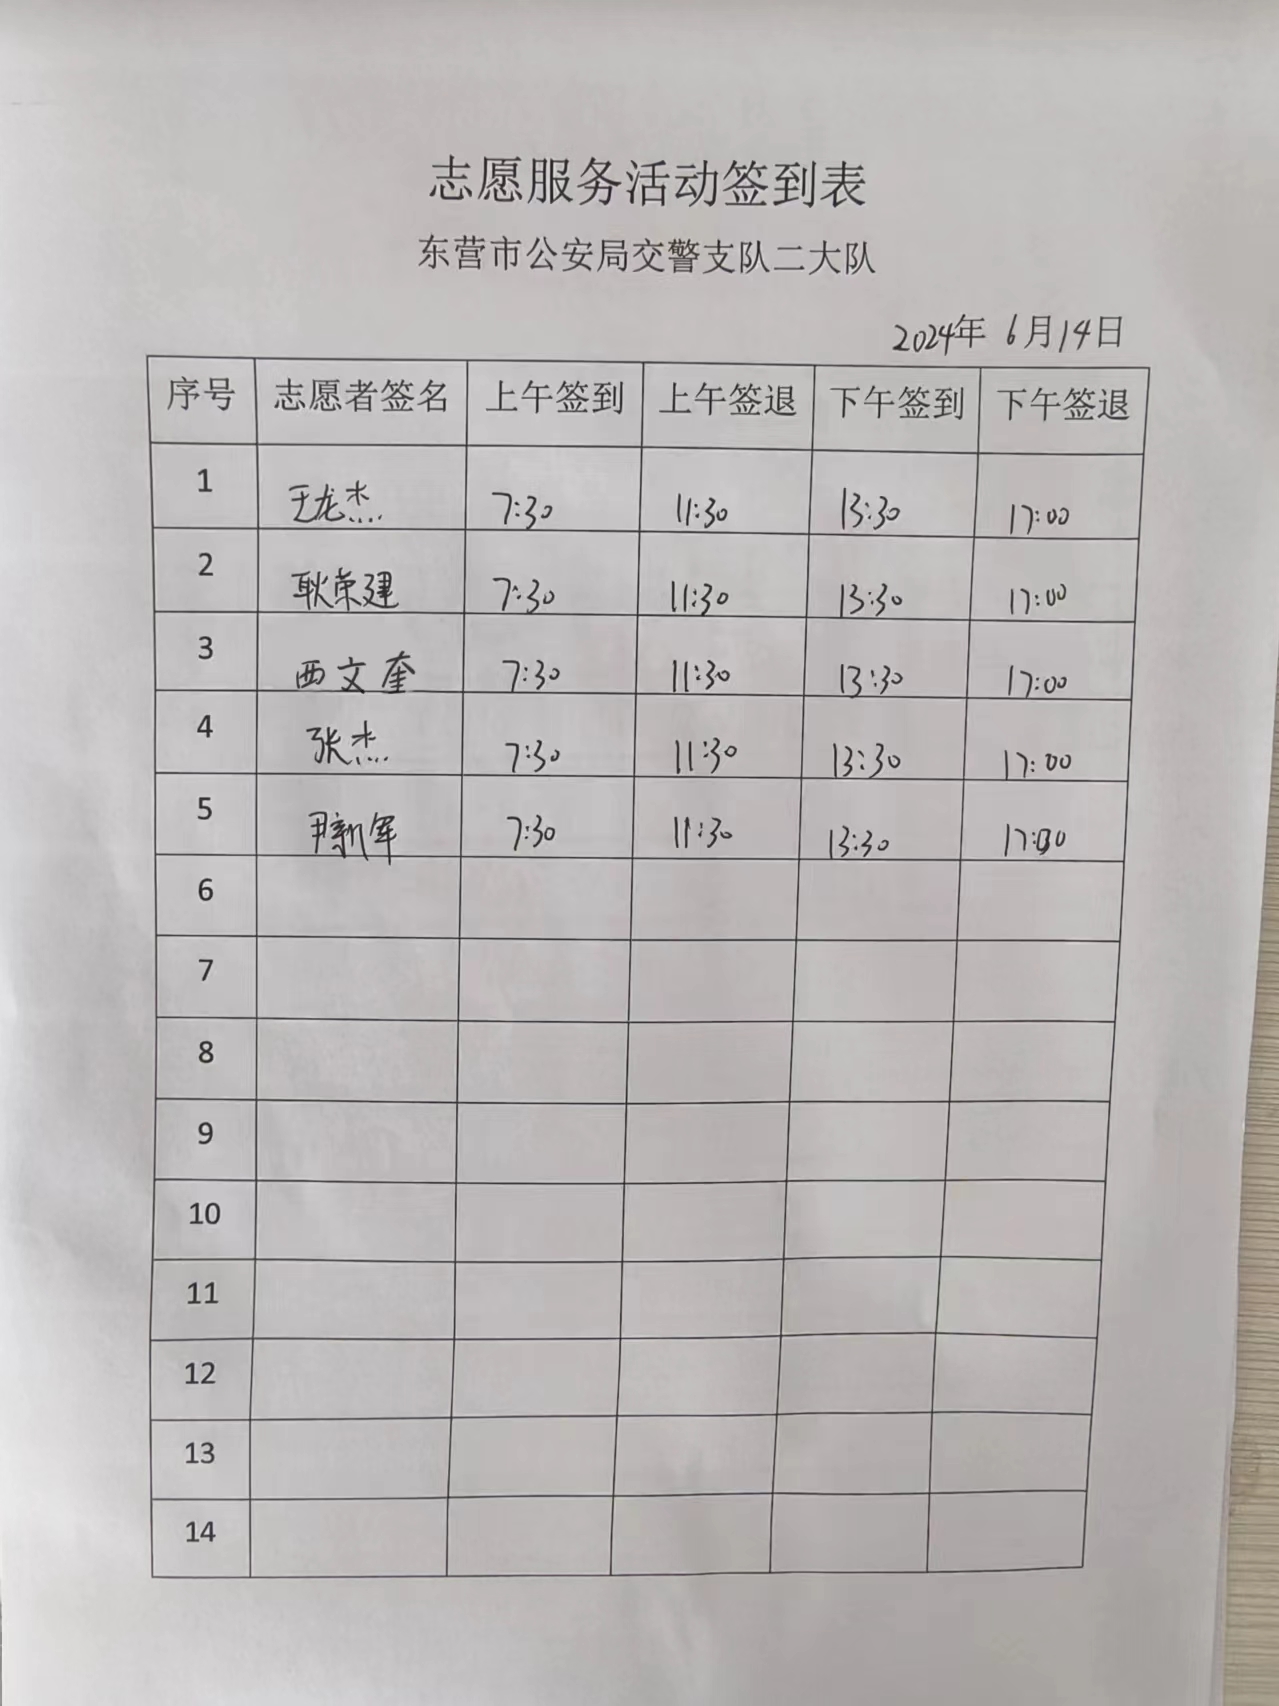 志愿服务活动签到表
东营市公安局交警支队二大队
2024年 6月14日
序号 志愿者签名 上午签到 上午签退 下午签到 下午签退
1 王龙杰 7:30 11:30 13:30 17:00
2 耿荣建 7:30 11:30 13:30 17:00
3 西文奎 7:30 11:30 13:30 17:00
4 张杰 7:30 11:30 13:30 17:00
5 尹新军 7:30 11:30 13:30
6
7
8
9
10
11
12
13
14